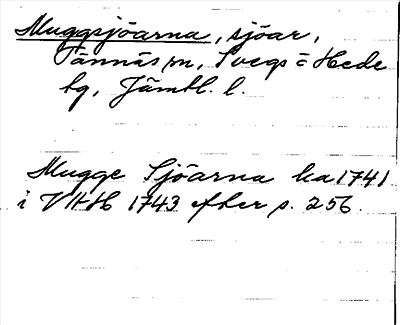 Muggsjöarna, sjöar,
Tännäs sn, Svegs o Hede
tg, Jämtl. l.
Mugge Sjöarna ka 1741
i VHH 1743 efter s. 256.